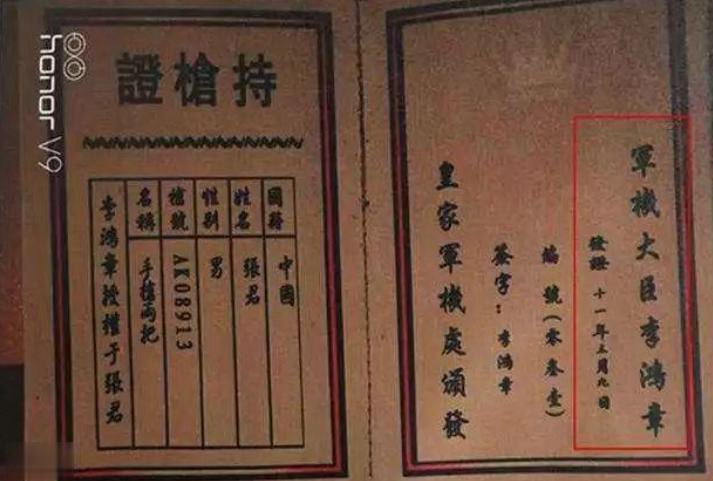 軍機大臣李鴻章
發證 十一年三月九日
編號(零叁壹)
簽字:李鴻章
皇家軍機處頒發
持槍證
國籍 中國
姓名 張君
性別 男
槍號 AK08913
名稱 手槍兩把
李鴻章授權于張君
honor V9